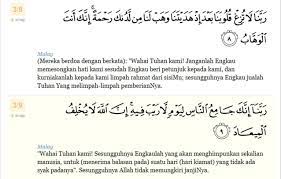 3:8
رَبَّنَا لَا تُزِغْ قُلُوبَنَا بَعْدَ إِذْ هَدَيْتَنَا وَهَبْ لَنَا مِن لَّدُنكَ رَحْمَةً إِنَّكَ أَنتَ
الْوَهَّابُ ٨
Malay
(Mereka berdoa dengan berkata): "Wahai Tuhan kami! Janganlah Engkau
memesongkan hati kami sesudah Engkau beri petunjuk kepada kami, dan
kurniakanlah kepada kami limpah rahmat dari sisiMu; sesungguhnya Engkau jualah
Tuhan Yang melimpah-limpah pemberianNya.
3:9
رَبَّنَا إِنَّكَ جَامِعُ النَّاسِ لِيَوْمٍ لَّا رَيْبَ فِيهِ إِنَّ اللَّهَ لَا يُخْلِفُ
الْمِيعَادَ ٩
Malay
"Wahai Tuhan kami! Sesungguhnya Engkaulah yang akan menghimpunkan sekalian
manusia, untuk (menerima balasan pada) suatu hari (hari kiamat) yang tidak ada
syak padanya". Sesungguhnya Allah tidak memungkiri janjiNya.